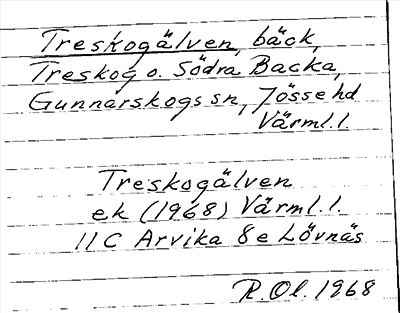 Treskogälven, bäck,
Treskog o. Södra Backa,
Gunnarskogs sn, Jösse hd
Värml. l.
Treskogälven
ek (1968) Värml. l.
11 C Arvika 8 e Lövnäs
R. Ol. 1968